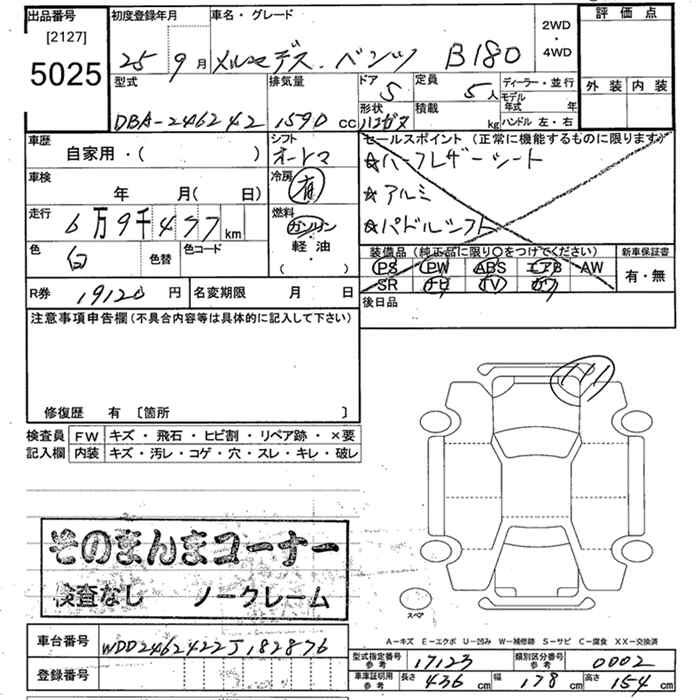 出品番号 初度登録年月 車名・グレード 評価点
[2127] 2WD
5025 25 9月 メルセデス・ベンツ B180 ・ 4WD
型式 排気量 ドア 定員 ディーラー・並行 外装 内装
5 5人 モデル年式 年
DBA-246242 1590cc 形状 積載 kg ハンドル 左・右
車歴 シフト セールスポイント (正常に機能するものに限ります)
自家用・( ) オートマ ☆ハーフレザーシート
車検 冷房 ☆アルミ
年 月( 日) 有 ☆パドルシフト
走行 燃料
6万9千477km ガソリン・軽油 ( )
色 色替 色コード 装備品 (純正品に限り○をつけてください) 新車保証書
白 PS PW ABS エアB AW 有・無
SR ナビ TV カワ
R券 19120円 名変期限 月 日 後日品
注意事項申告欄 (不具合内容等は具体的に記入して下さい)
修復歴 有 〔箇所 〕
検査員 FW キズ・飛石・ヒビ割・リペア跡・×要
記入欄 内装 キズ・汚レ・コゲ・穴・スレ・キレ・破レ
そのまんまコーナー
検査なし ノークレーム
スペア
A-キズ E-エクボ U-凹み W-補修跡 S-サビ C-腐食 XX-交換済
車台番号 WDD2462422J182876
登録番号
型式指定番号 参考 17123 類別区分番号 参考 0002
車庫証明用 参考 長さ 436cm 幅 178cm 高さ 154cm